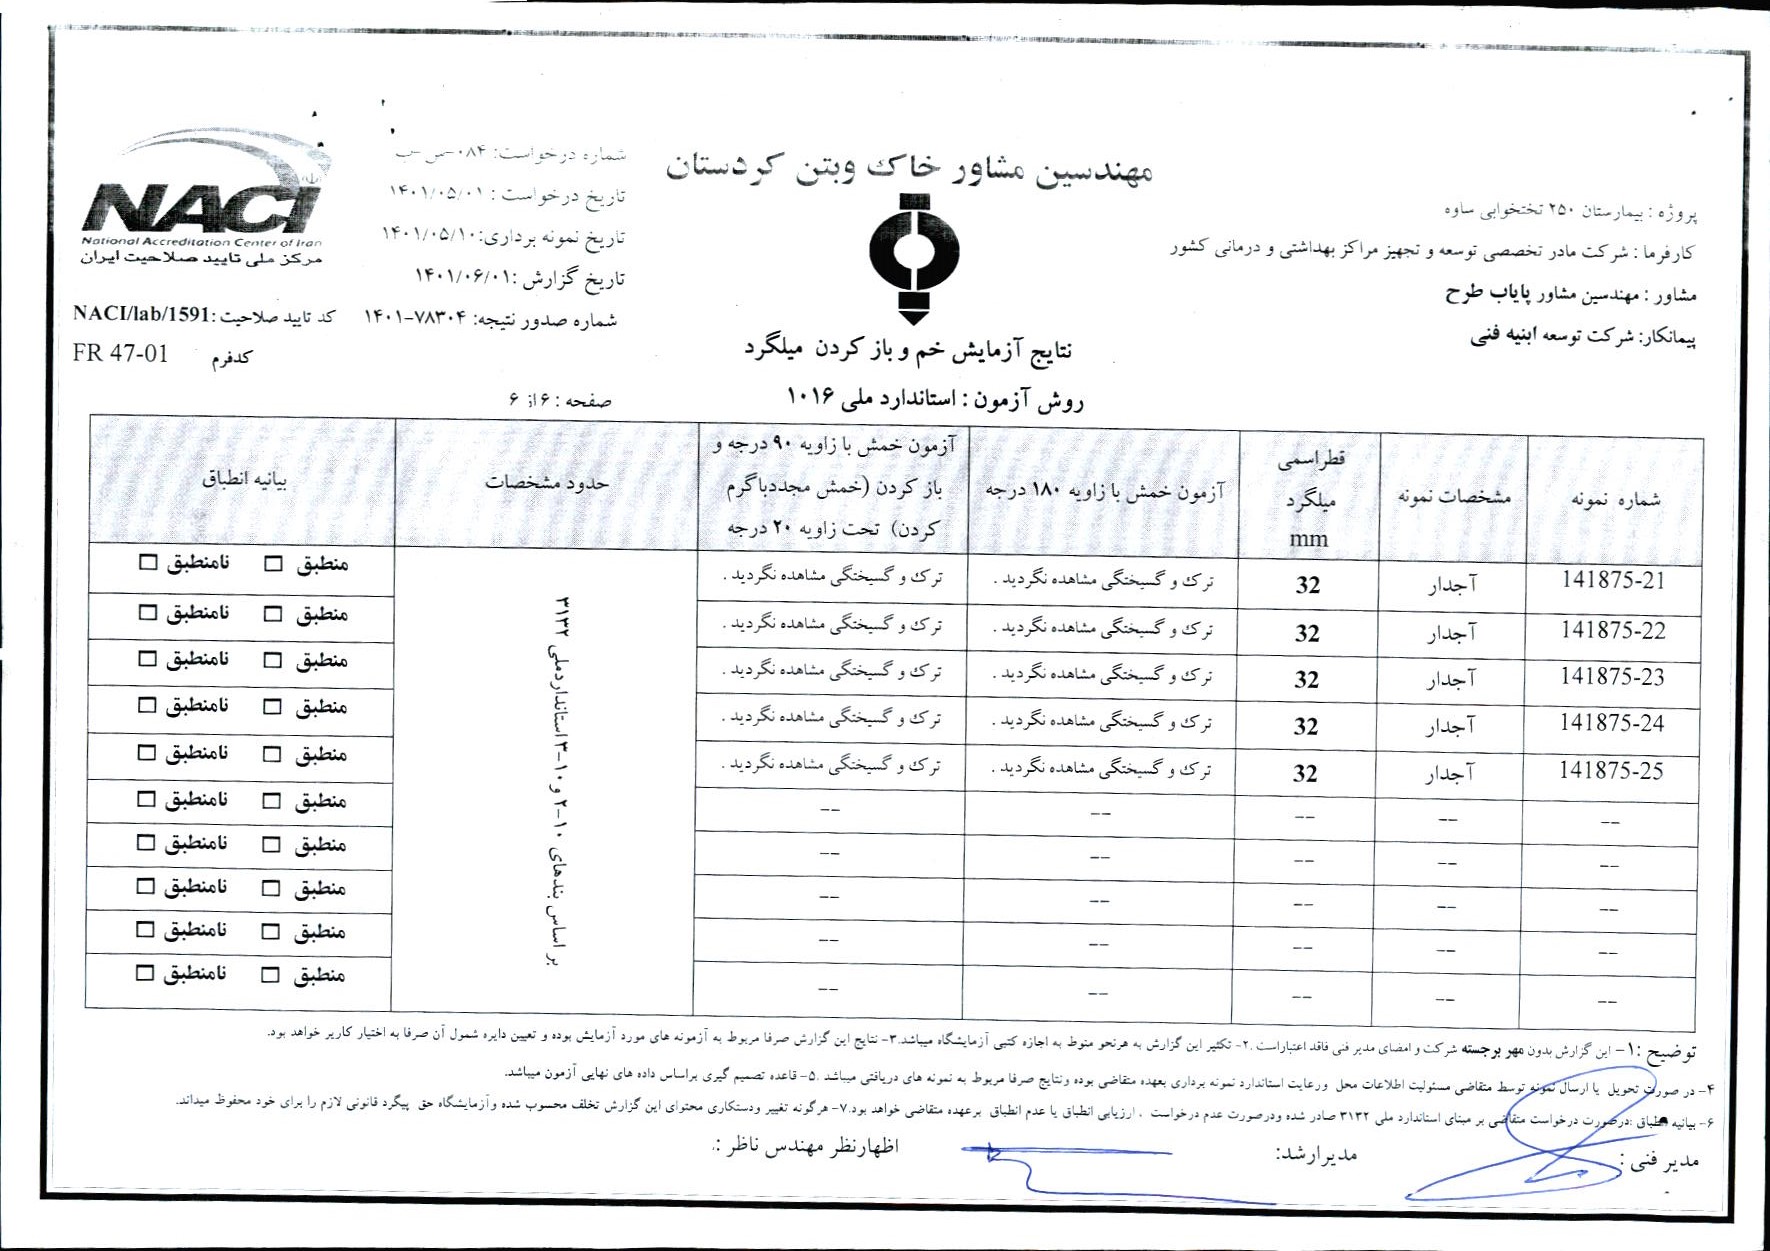 مهندسین مشاور خاک وبتن کردستان
پروژه : بیمارستان ۲۵۰ تختخوابی ساوه
کارفرما : شرکت مادر تخصصی توسعه و تجهیز مراکز بهداشتی و درمانی کشور
مشاور : مهندسین مشاور پایاب طرح
پیمانکار: شرکت توسعه ابنیه فنی
شماره درخواست: ۰۸۴-س-ب
تاریخ درخواست : ۱۴۰۱/۰۵/۰۱
تاریخ نمونه برداری: ۱۴۰۱/۰۵/۱۰
تاریخ گزارش : ۱۴۰۱/۰۶/۰۱
شماره صدور نتیجه: ۷۸۳۰۴-۱۴۰۱
NACI
National Accreditation Center of Iran
مرکز ملی تایید صلاحیت ایران
کد تایید صلاحیت :NACI/lab/1591
کدفرم FR 47-01
نتایج آزمایش خم و باز کردن میلگرد
روش آزمون : استاندارد ملی ۱۰۱۶
صفحه : ۶ از ۶
شماره نمونه
مشخصات نمونه
قطراسمی
میلگرد
mm
آزمون خمش با زاویه ۱۸۰ درجه
آزمون خمش با زاویه ۹۰ درجه و
باز کردن (خمش مجددباگرم
کردن) تحت زاویه ۲۰ درجه
حدود مشخصات
بیانیه انطباق
141875-21 آجدار 32 ترک و گسیختگی مشاهده نگردید . ترک و گسیختگی مشاهده نگردید . منطبق ☐ نامنطبق ☐
141875-22 آجدار 32 ترک و گسیختگی مشاهده نگردید . ترک و گسیختگی مشاهده نگردید . منطبق ☐ نامنطبق ☐
141875-23 آجدار 32 ترک و گسیختگی مشاهده نگردید . ترک و گسیختگی مشاهده نگردید . منطبق ☐ نامنطبق ☐
141875-24 آجدار 32 ترک و گسیختگی مشاهده نگردید . ترک و گسیختگی مشاهده نگردید . منطبق ☐ نامنطبق ☐
141875-25 آجدار 32 ترک و گسیختگی مشاهده نگردید . ترک و گسیختگی مشاهده نگردید . منطبق ☐ نامنطبق ☐
-- -- -- -- -- منطبق ☐ نامنطبق ☐
-- -- -- -- -- منطبق ☐ نامنطبق ☐
-- -- -- -- -- منطبق ☐ نامنطبق ☐
-- -- -- -- -- منطبق ☐ نامنطبق ☐
-- -- -- -- -- منطبق ☐ نامنطبق ☐
بر اساس بندهای ۱۰-۲ و ۱۰-۳ استانداردملی ۳۱۳۲
توضیح :۱- این گزارش بدون مهر برجسته شرکت و امضای مدیر فنی فاقد اعتباراست .۲- تکثیر این گزارش به هرنحو منوط به اجازه کتبی آزمایشگاه میباشد.۳- نتایج این گزارش صرفا مربوط به آزمونه های مورد آزمایش بوده و تعیین دایره شمول آن صرفا به اختیار کاربر خواهد بود.
۴- در صورت تحویل یا ارسال نمونه توسط متقاضی مسئولیت اطلاعات محل ورعایت استاندارد نمونه برداری بعهده متقاضی بوده ونتایج صرفا مربوط به نمونه های دریافتی میباشد .۵- قاعده تصمیم گیری براساس داده های نهایی آزمون میباشد.
۶- بیانیه انطباق :درصورت درخواست متقاضی بر مبنای استاندارد ملی ۳۱۳۲ صادر شده ودرصورت عدم درخواست ، ارزیابی انطباق یا عدم انطباق برعهده متقاضی خواهد بود.۷- هرگونه تغییر ودستکاری محتوای این گزارش تخلف محسوب شده وآزمایشگاه حق پیگرد قانونی لازم را برای خود محفوظ میداند.
مدیر فنی : مدیرارشد: اظهارنظر مهندس ناظر :